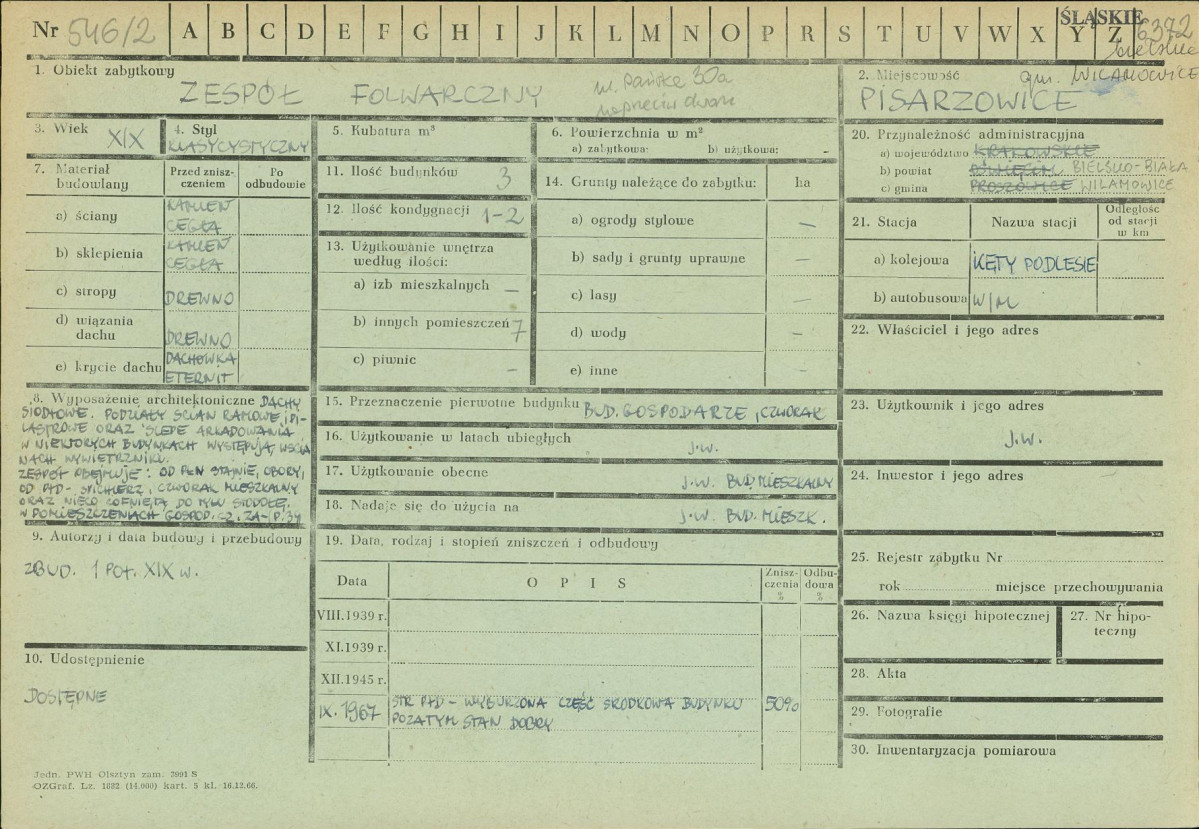 Nr 546/2 A B C D E F G H I J K L M N O P R S T U V W X Y Z ŚLĄSKIE 6372
bielskie
1. Obiekt zabytkowy
ZESPÓŁ FOLWARCZNY
ul. Pańska 30a
naprzeciw dworu
2. Miejscowość gm. WILAMOWICE
PISARZOWICE
3. Wiek XIX
4. Styl
KLASYCYSTYCZNY
5. Kubatura m³
6. Powierzchnia w m²
a) zabytkowa: b) użytkowa: -
7. Materiał budowlany
Przed zniszczeniem
Po odbudowie
a) ściany KAMIEŃ
CEGŁA
b) sklepienia KAMIEŃ
CEGŁA
c) stropy DREWNO
d) wiązania dachu DREWNO
e) krycie dachu DACHÓWKA
ETERNIT
11. Ilość budynków 3
12. Ilość kondygnacji 1-2
13. Użytkowanie wnętrza
według ilości:
a) izb mieszkalnych —
b) innych pomieszczeń 7
c) piwnic —
14. Grunty należące do zabytku: ha
a) ogrody stylowe —
b) sady i grunty uprawne —
c) lasy —
d) wody —
e) inne
20. Przynależność administracyjna
a) województwo KRAKOWSKIE
b) powiat OŚWIĘCIM BIELSKO-BIAŁA
c) gmina PROSZOWICE WILAMOWICE
21. Stacja Nazwa stacji Odległość
od stacji
w km
a) kolejowa KĘTY PODLESIE
b) autobusowa W/M
22. Właściciel i jego adres
8. Wyposażenie architektoniczne DACHY
SIODŁOWE. PODZIAŁY ŚCIAN RAMOWE, PI-
LASTROWE ORAZ ŚLEPE ARKADOWANIA
W NIEKTÓRYCH BUDYNKACH WYSTĘPUJĄ W ŚCIA
NACH WYWIETRZNIKI.
ZESPÓŁ OBEJMUJE: OD PŁN STAJNIE, OBORY,
OD PŁD- SPICHLERZ, CZWORAK MIESZKALNY
ORAZ NIECO COFNIĘTĄ DO TYŁU STODOŁĘ.
W POMIESZCZENIACH GOSPOD.
15. Przeznaczenie pierwotne budynku BUD. GOSPODARZE, CZWORAK
16. Użytkowanie w latach ubiegłych J.W.
17. Użytkowanie obecne J.W. BUD. MIESZKALNY
18. Nadaje się do użycia na J.W. BUD. MIESZK.
23. Użytkownik i jego adres
J.W.
24. Inwestor i jego adres
9. Autorzy i data budowy i przebudowy
ZBUD. 1 POŁ. XIX w.
19. Data, rodzaj i stopień zniszczeń i odbudowy
Data OPIS Zniszczenia % Odbudowa %
VIII.1939 r.
XI.1939 r.
XII.1945 r.
IX. 1967 STR PŁD - WYBURZONA CZĘŚĆ ŚRODKOWA BUDYNKU 50%
POZATYM STAN DOBRY
10. Udostępnienie
DOSTĘPNE
25. Rejestr zabytku Nr
rok miejsce przechowywania
26. Nazwa księgi hipotecznej
27. Nr hipoteczny
28. Akta
29. Fotografie
30. Inwentaryzacja pomiarowa
Jedn. PWH Olsztyn zam. 2991 S
OZGraf. Lz. 1832 (14.000) kart. 5 kl. 16.12.66.